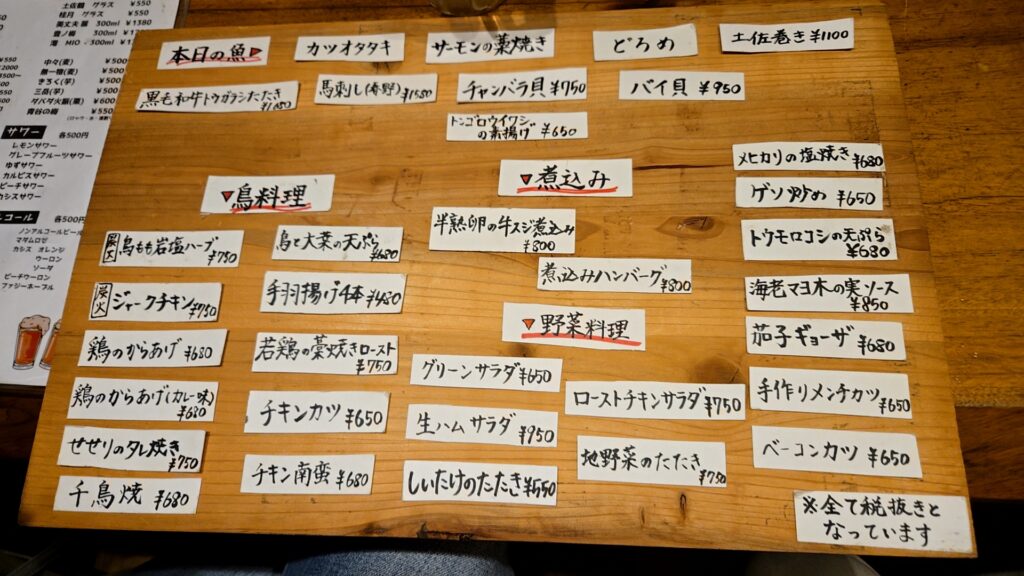 土佐鶴 グラス ¥550
桂月 グラス ¥550
美丈夫 麗 300ml ¥1380
300ml ¥1380
澪 MIO - 300ml ¥1380
中々(麦) ¥500
(麦) ¥500
きろく(芋) ¥500
三岳(芋) ¥500
ダバダ火振(栗) ¥600
¥550
サワー 各500円
レモンサワー
グレープフルーツサワー
ゆずサワー
カルピスサワー
ピーチサワー
カシスサワー
コール 各500円
ノンアルコールビール
マダムロゼ
カシス オレンジ
ウーロン
ソーダ
ピーチウーロン
ファジーネーブル
本日の魚
カツオタタキ
サーモンの藁焼き
どろめ
土佐巻き ¥1100
黒毛和牛トウガラシたたき
馬刺し ¥1580
チャンバラ貝 ¥750
バイ貝 ¥950
トンゴロウイワシ
の素揚げ ¥650
▼鳥料理
炭火 鳥もも岩塩ハーブ
¥750
鳥と大葉の天ぷら
¥680
炭火 ジャークチキン ¥750
手羽揚げ4本 ¥480
鶏のからあげ ¥680
若鶏の藁焼きロースト
¥750
鶏のからあげ(カレー味)
¥680
チキンカツ ¥650
せせりのタレ焼き
¥750
チキン南蛮 ¥680
千鳥焼 ¥680
▼煮込み
半熟卵の牛スジ煮込み
¥800
煮込みハンバーグ
¥800
▼野菜料理
グリーンサラダ ¥650
ローストチキンサラダ ¥750
生ハムサラダ ¥950
地野菜のたたき
¥750
しいたけのたたき ¥550
メヒカリの塩焼き ¥680
ゲソ炒め ¥650
トウモロコシの天ぷら
¥680
海老マヨ木の実ソース
¥850
茄子ギョーザ ¥680
手作りメンチカツ
¥650
ベーコンカツ ¥650
※全て税抜きと
なっています